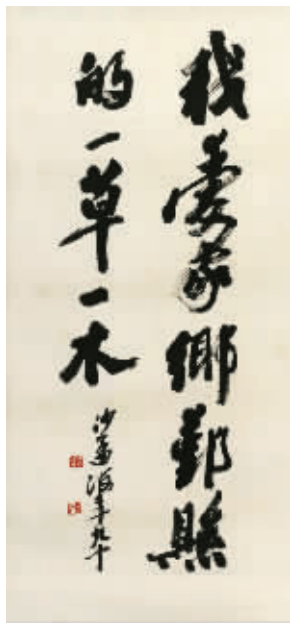 我愛家鄉鄞縣
的一草一木
沙孟海年九十